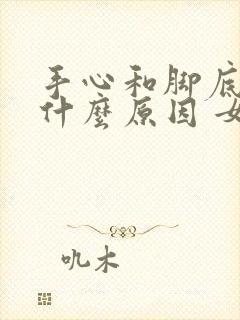 手心和脚底
什麽原因 女
吼木